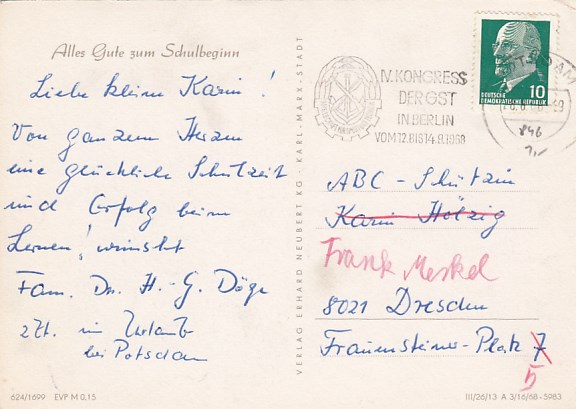 Alles Gute zum Schulbeginn
Liebe kleine Karin!
Von ganzem Herzen
eine glückliche Schulzeit
und Erfolg beim
Lernen, wünscht
Fam. Dr. H.-G. Döge
zZt. im Urlaub
bei Potsdam
624/1699 EVP M 0,15
VERLAG ERHARD NEUBERT KG · KARL-MARX-STADT
IV. KONGRESS
DER GST
IN BERLIN
VOM 12. BIS 14. 9. 1968
POTSDAM
DEUTSCHE
DEMOKRATISCHE REPUBLIK
10
846
1,-
ABC-Schützin
Karin Hölzig
Frank Merkel
8021 Dresden
Frauensteiner-Platz 7
5
III/26/13 A 3/16/68-5983